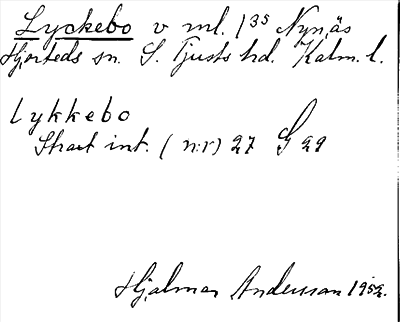 Lyckebo v ml. 1³⁵ Nynäs
Hjorteds sn. S. Tjusts hd. Kalm. l.
Lykkebo
Skat int. (n:r) 27 G 29
Hjalmar Andersson 1952.